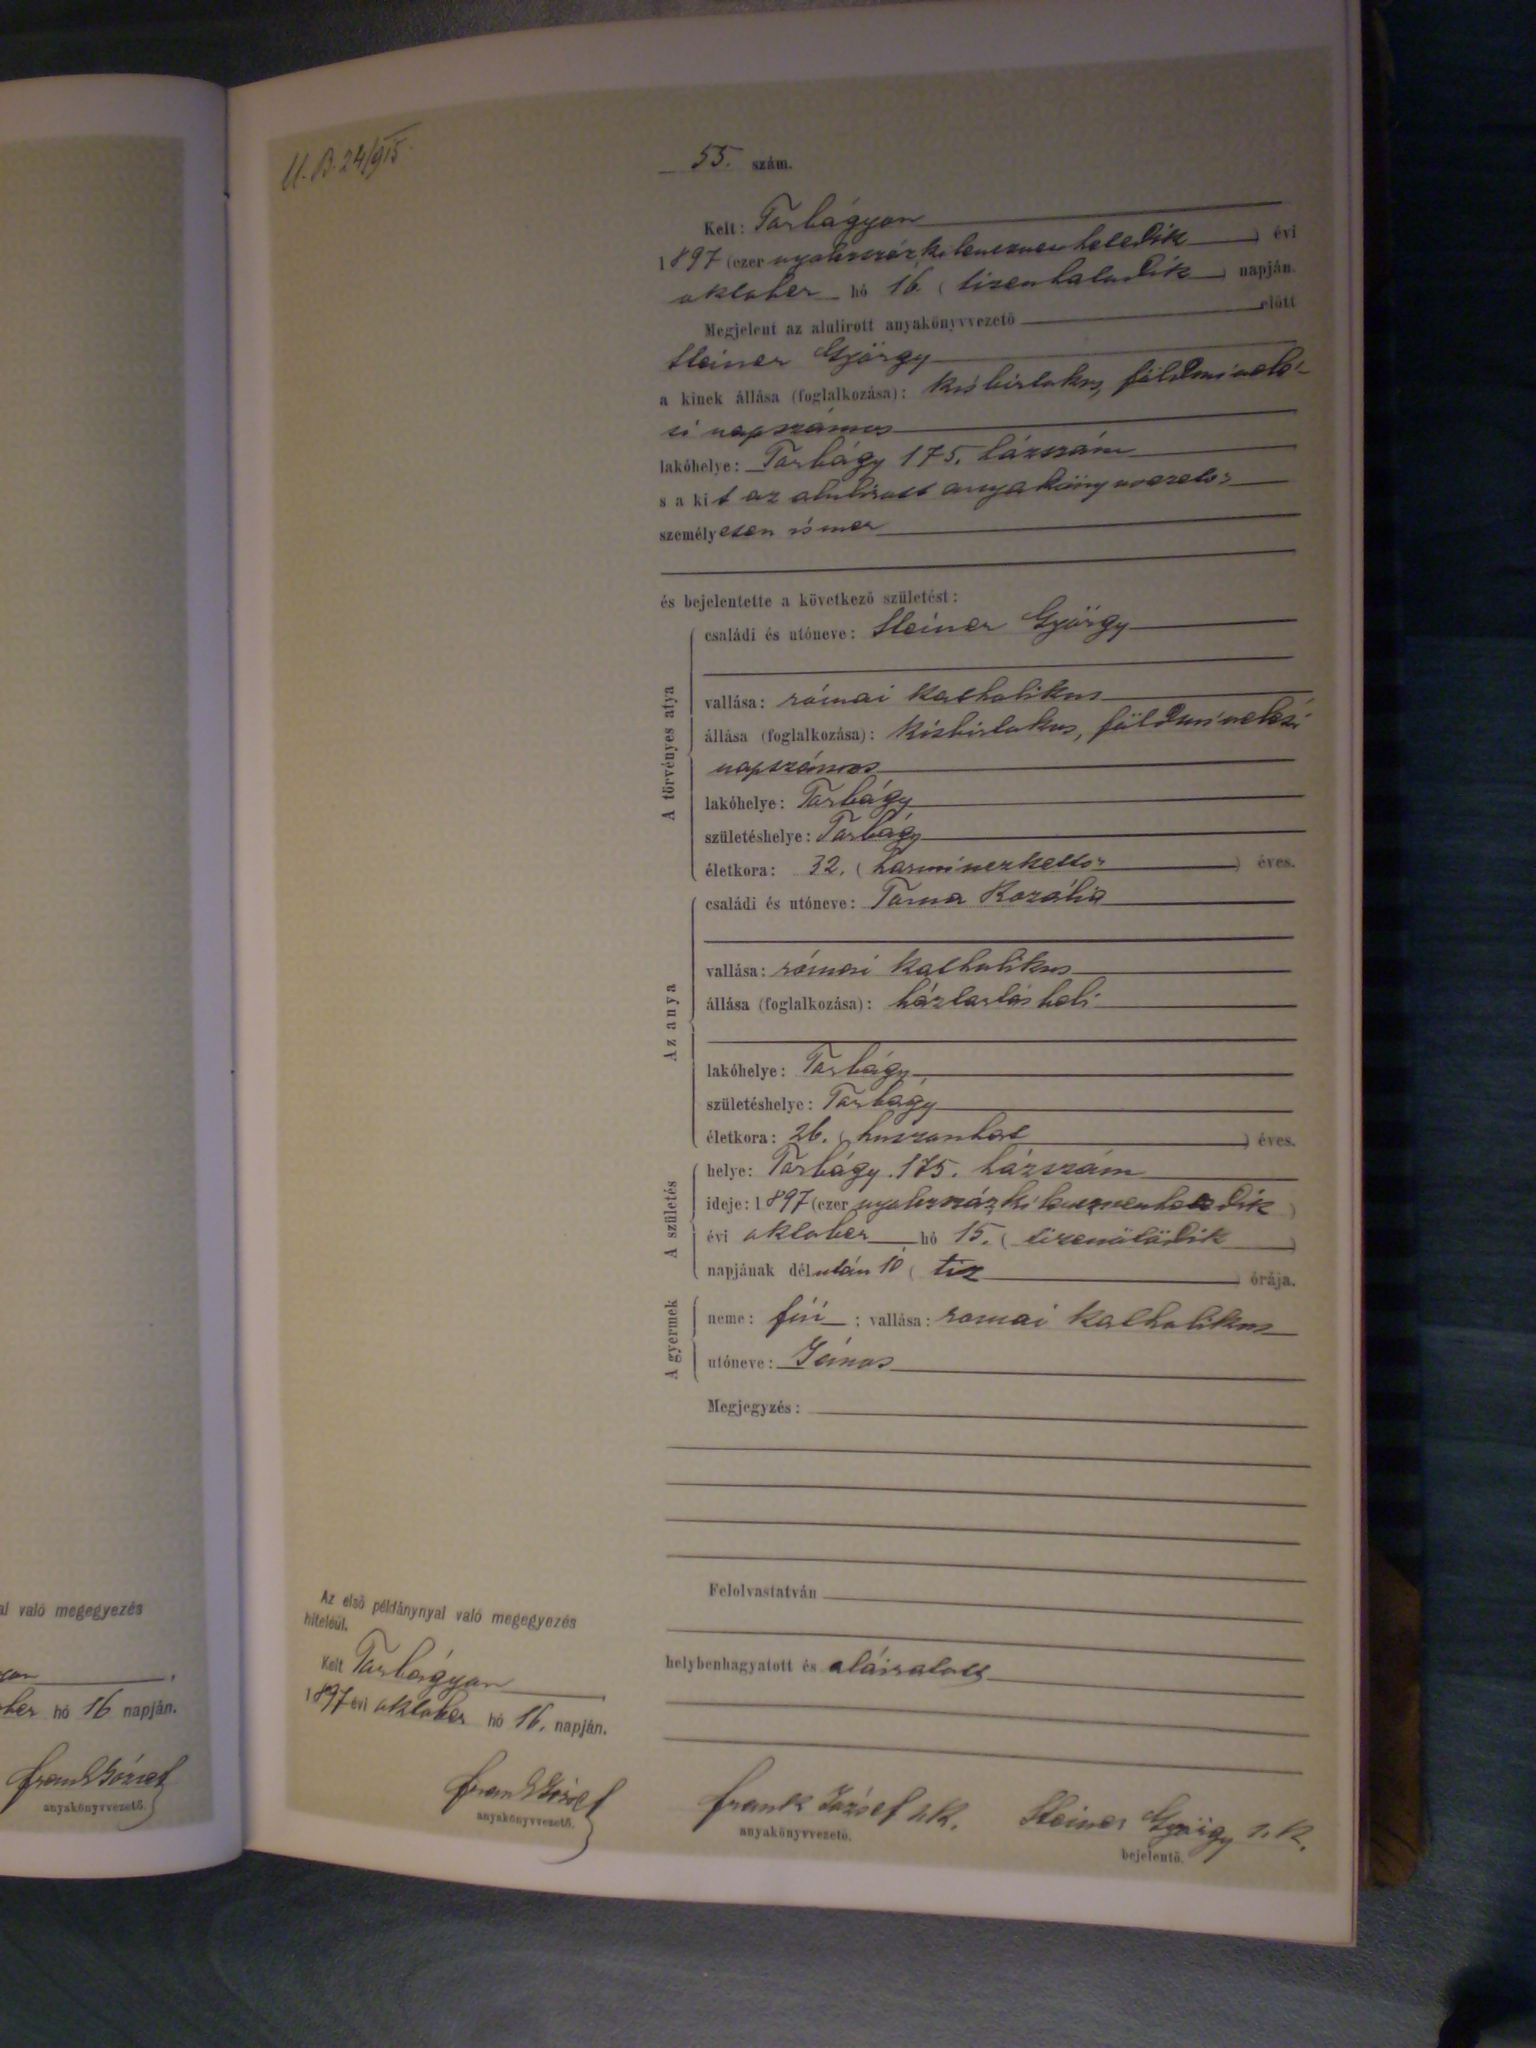 U. B. 24/915.
55. szám.
Kelt: Torbágyon
1897 (ezer nyolczszázkilenczvenhetedik) évi
oktober hó 16 (tizenhatodik) napján.
Megjelent az alulirott anyakönyvvezető előtt
Steiner György
a kinek állása (foglalkozása): kisbirtokos, földmivelé-
si napszámos
lakóhelye: Torbágy 175. házszám
s a kit az alulirott anyakönyvvezető
személyesen ismer
és bejelentette a következő születést:
A törvényes atya
családi és utóneve: Steiner György
vallása: római katholikus
állása (foglalkozása): kisbirtokos, földmivelési
napszámos
lakóhelye: Torbágy
születéshelye: Torbágy
életkora: 32. (harminczkettő) éves.
Az anya
családi és utóneve: Rozália
vallása: római katholikus
állása (foglalkozása): háztartásbeli
lakóhelye: Torbágy
születéshelye: Torbágy
életkora: 26. (huszonhat) éves.
A születés
helye: Torbágy. 175. házszám
ideje: 1897 (ezer nyolczszázkilenczvenhetedik)
évi oktober hó 15. (tizenötödik)
napjának délután 10 (tiz) órája.
A gyermek
neme: fiú; vallása: romai katholikus
utóneve: János
Megjegyzés:
Felolvastatván
helybenhagyatott és aláiratott
Frank József s.k.
anyakönyvvezető.
Steiner György s.k.
bejelentő.
Az első példánynyal való megegyezés
hiteléül.
Kelt Torbágyon
1897 évi oktober hó 16. napján.
Frank József
anyakönyvvezető.
al való megegyezés
hó 16 napján.
Frank József
anyakönyvvezető.